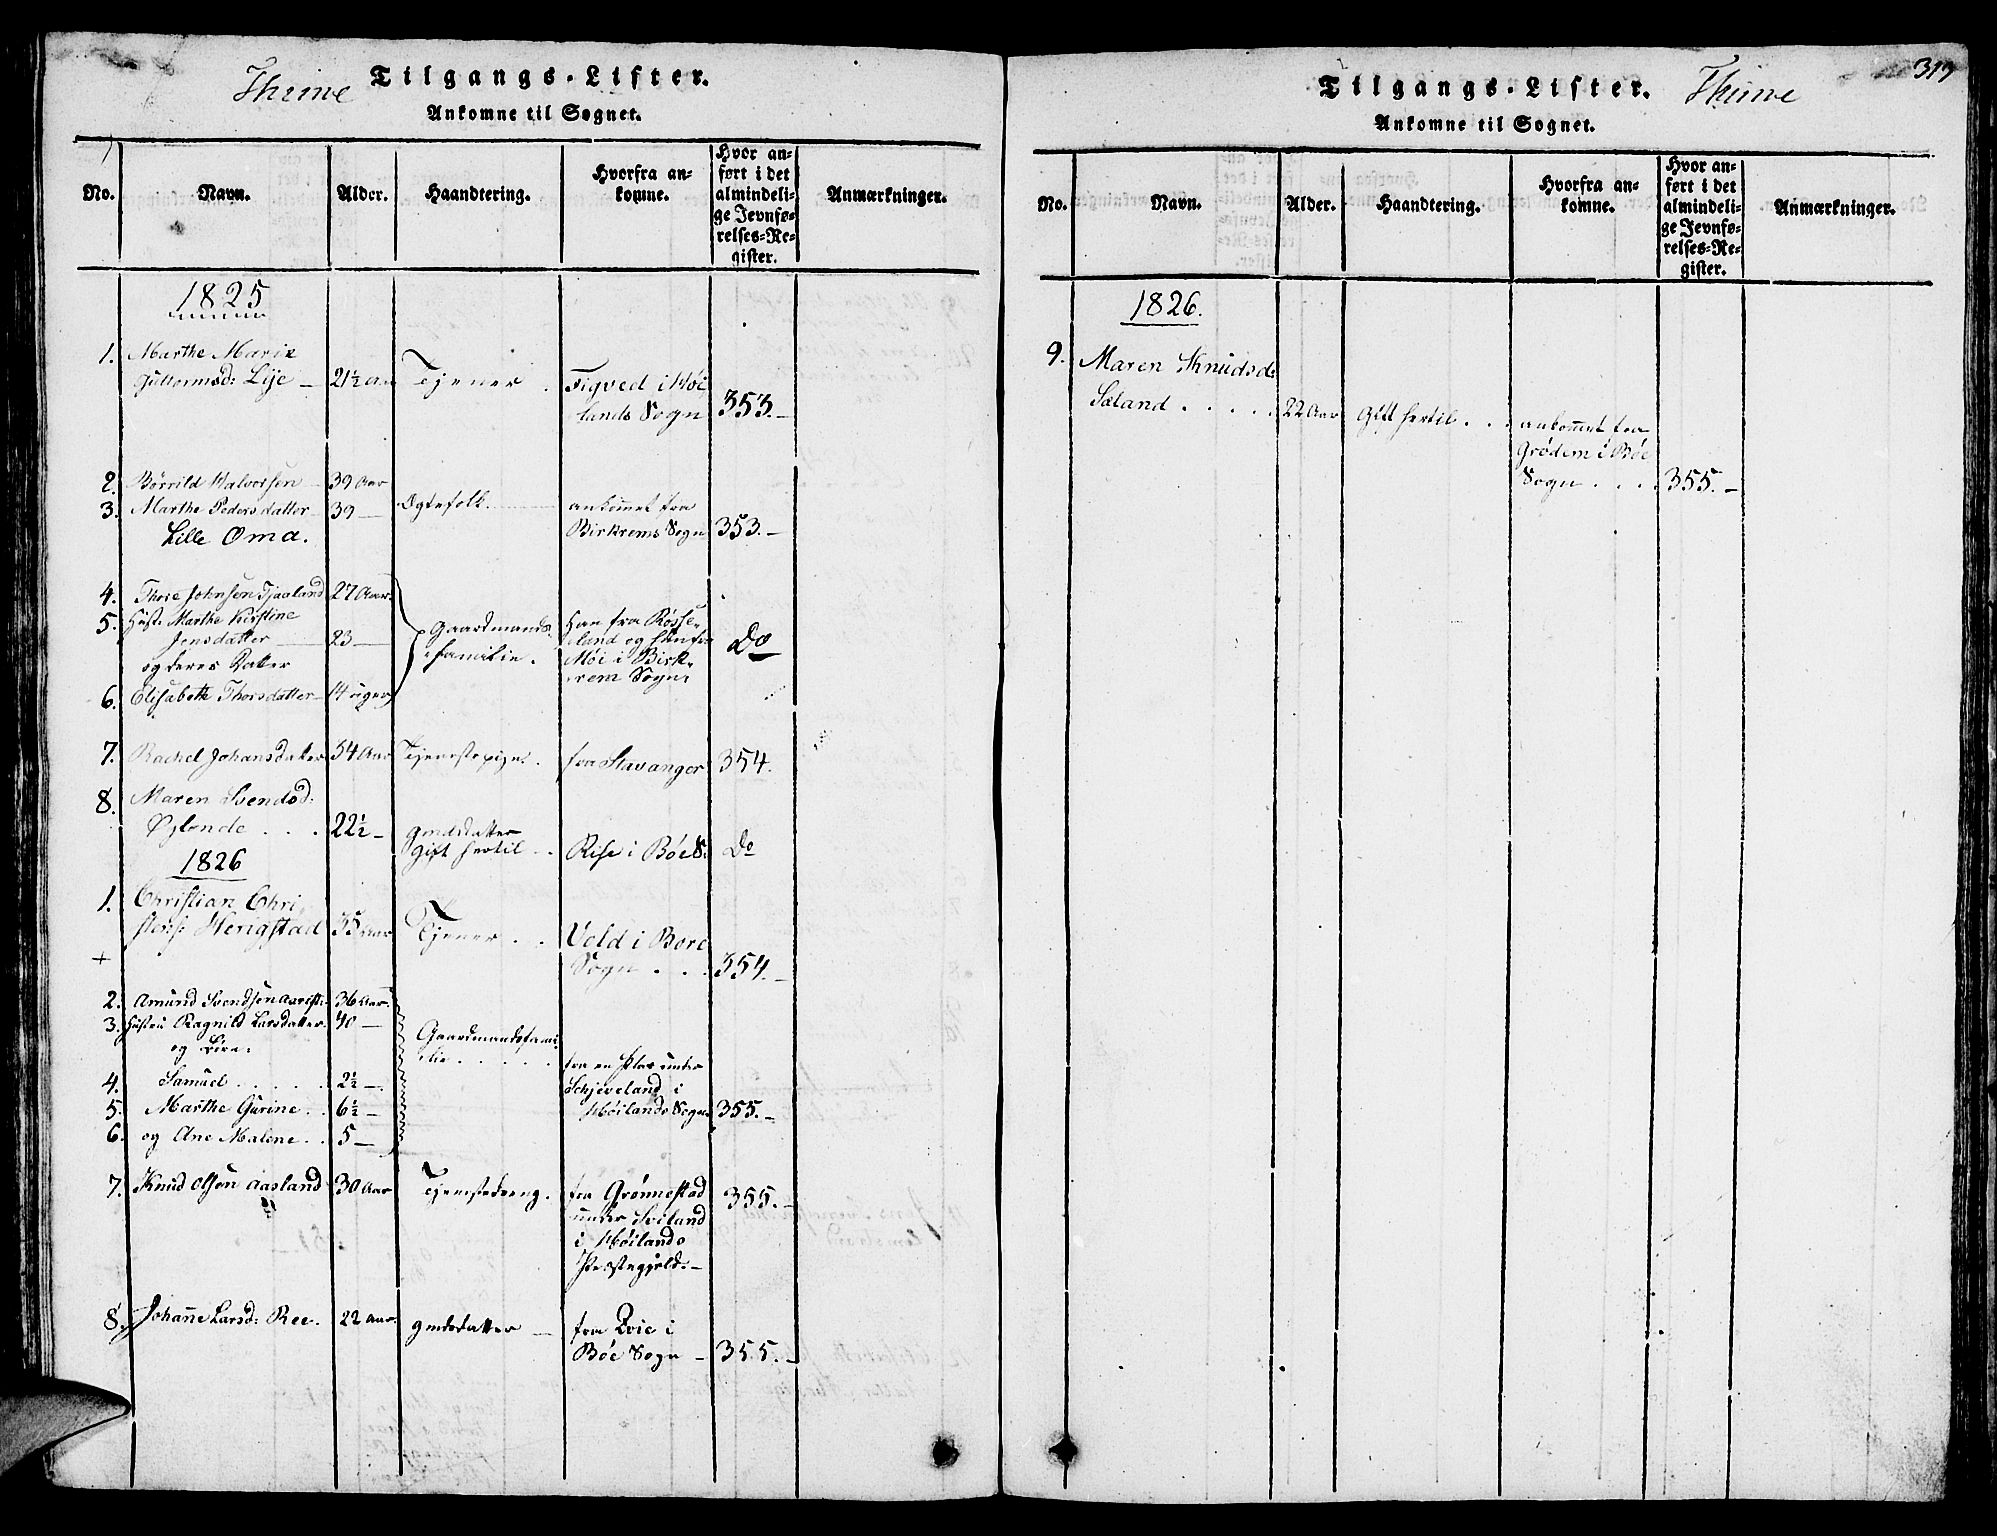 Thime
Tilgangs-Lister.
Ankomne til Sognet.
No. Navn. Alder. Haandtering. Hvorfra ankomne. Hvor anført i det almindelige Jevnførelses-Register. Anmærkninger.
1825
1. Marthe Marie
Guttormsd: Lije 21½ Aar Tjener. Figved i Höi
lands Sogn 353.
2. Börrild Halvorsen 39 Aar
3. Marthe Pedersdatter 39 — Ægtefolk. ankommet fra
Lille Oma. Birkrems Sogn 353.
4. Thore Johnsen Tjaaland 27 Aar.
5. Hust. Marthe Kirstine Gaardmands- Han fra Rosse-
Jonsdatter 23 — familie. land og hun fra Do
og deres Datter Möi i Birk-
rem Sogn.
6. Elisabeth Thorsdatter 14 uger
7. Rachel Johansdatter 34 Aar Tjenestepige. fra Stavanger 354.
8. Maren Svendsd:
Öglende . . . 22½ — gmdsdatter
gift hertil . . Rise i Böe S. Do
1826
1. Christian Chri
stens: Herigstad 35 Aar Tjener . . Veld i Bore
+ Sogn . . . 354.
2. Amund Svendsen 36 Aar.
3. Hustru Ragnild Larsdatter. 40 — Gaardmandsfami-
og Börn: lie . . . . . fra en Plads under
4. Samuel . . . . . 2½ — Schjeveland i
5. Marthe Gurine . 6½ — Höilands Sogn 355.
6. og Ane Malene . . 5 —
7. Knud Olsen Aasland 30 Aar Tjenestedreng. fra Grönnestad 355.
under Sviland
i Höilands
Præstegjeld. —
8. Johanne Larsd: Ree. 22 Aar. gmdsdatter — fra Qvie i
Böe Sogn — 355.
Tilgangs-Lister. Thime
317
Ankomne til Sognet.
No. Navn. Alder. Haandtering. Hvorfra ankomne. Hvor anført i det almindelige Jevnførelses-Register. Anmærkninger.
1826.
9. Maren Knudsd:
Sæland . . . . . 22 Aar Gift hertil . . . ankommet fra
Grödem i Böe
Sogn . . . . 355. —